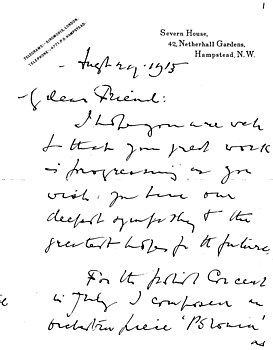 1
TELEGRAMS:- SIROMORIS, LONDON.
TELEPHONE:- 4771 P.O. HAMPSTEAD.
Severn House,
42, Netherhall Gardens,
Hampstead, N.W.
1915
My dear Friend:
I hope you are well
& that your great work
is progressing as you
wish. You have our
deepest sympathy & the
greatest hopes for the future.
For the Polish Concert
in July I composed an
orchestral piece 'Polonia'